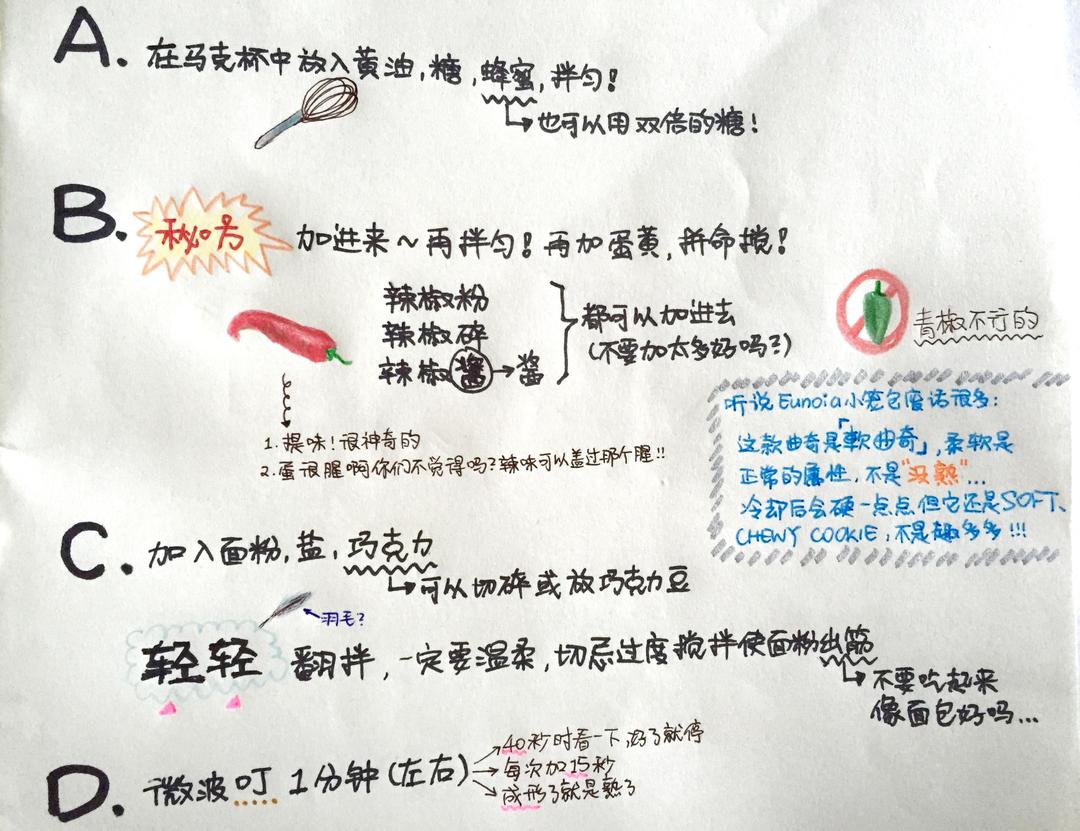 A. 在马克杯中放入黄油,糖,蜂蜜,拌匀!
也可以用双倍的糖!
B. 秘方 加进来~再拌匀!再加蛋黄,拼命搅!
辣椒粉
辣椒碎
辣椒醬→酱
都可以加进去
(不要加太多好吗?)
青椒不行的
1. 提味!很神奇的
2. 蛋很腥啊你们不觉得吗?辣味可以盖过那个腥!!
听说Eunoia小笼包废话很多:
这款曲奇是「軟曲奇」,柔软是
正常的属性,不是"没熟"...
冷却后会硬一点点但它还是SOFT、
CHEWY COOKIE,不是趣多多!!!
C. 加入面粉,盐,巧克力
可以切碎或放巧克力豆
羽毛?
轻轻 翻拌,一定要温柔,切忌过度搅拌使面粉出筋
不要吃起来
像面包好吗...
D. 微波叮 1分钟(左右)
40秒时看一下,好了就停
每次加15秒
成形了就是熟了